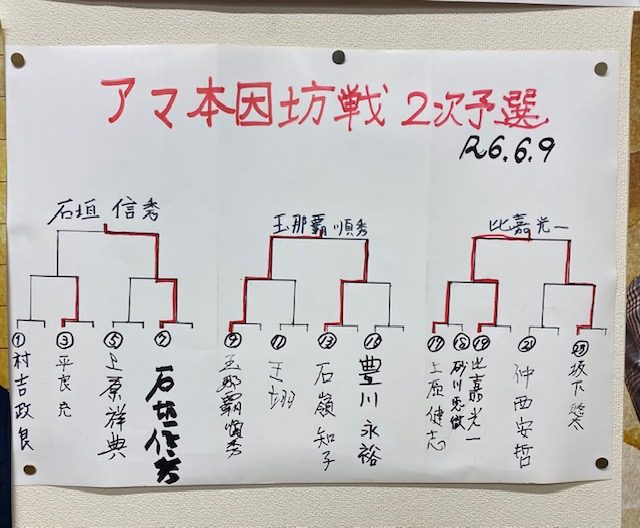 アマ本因坊戦 2次予選
R6.6.9
石垣 信秀
玉那覇順秀
比嘉光一
① 村吉政良
③ 平良 充
⑤ 上原祥典
⑦ 石垣信秀
⑨ 玉那覇順秀
⑪ 王 翊
⑬ 石嶺知子
⑮ 豊川永裕
⑰ 上原健志
⑱ 砂川
⑲ 比嘉光一
㉑ 仲西安哲
㉓ 坂下悠太